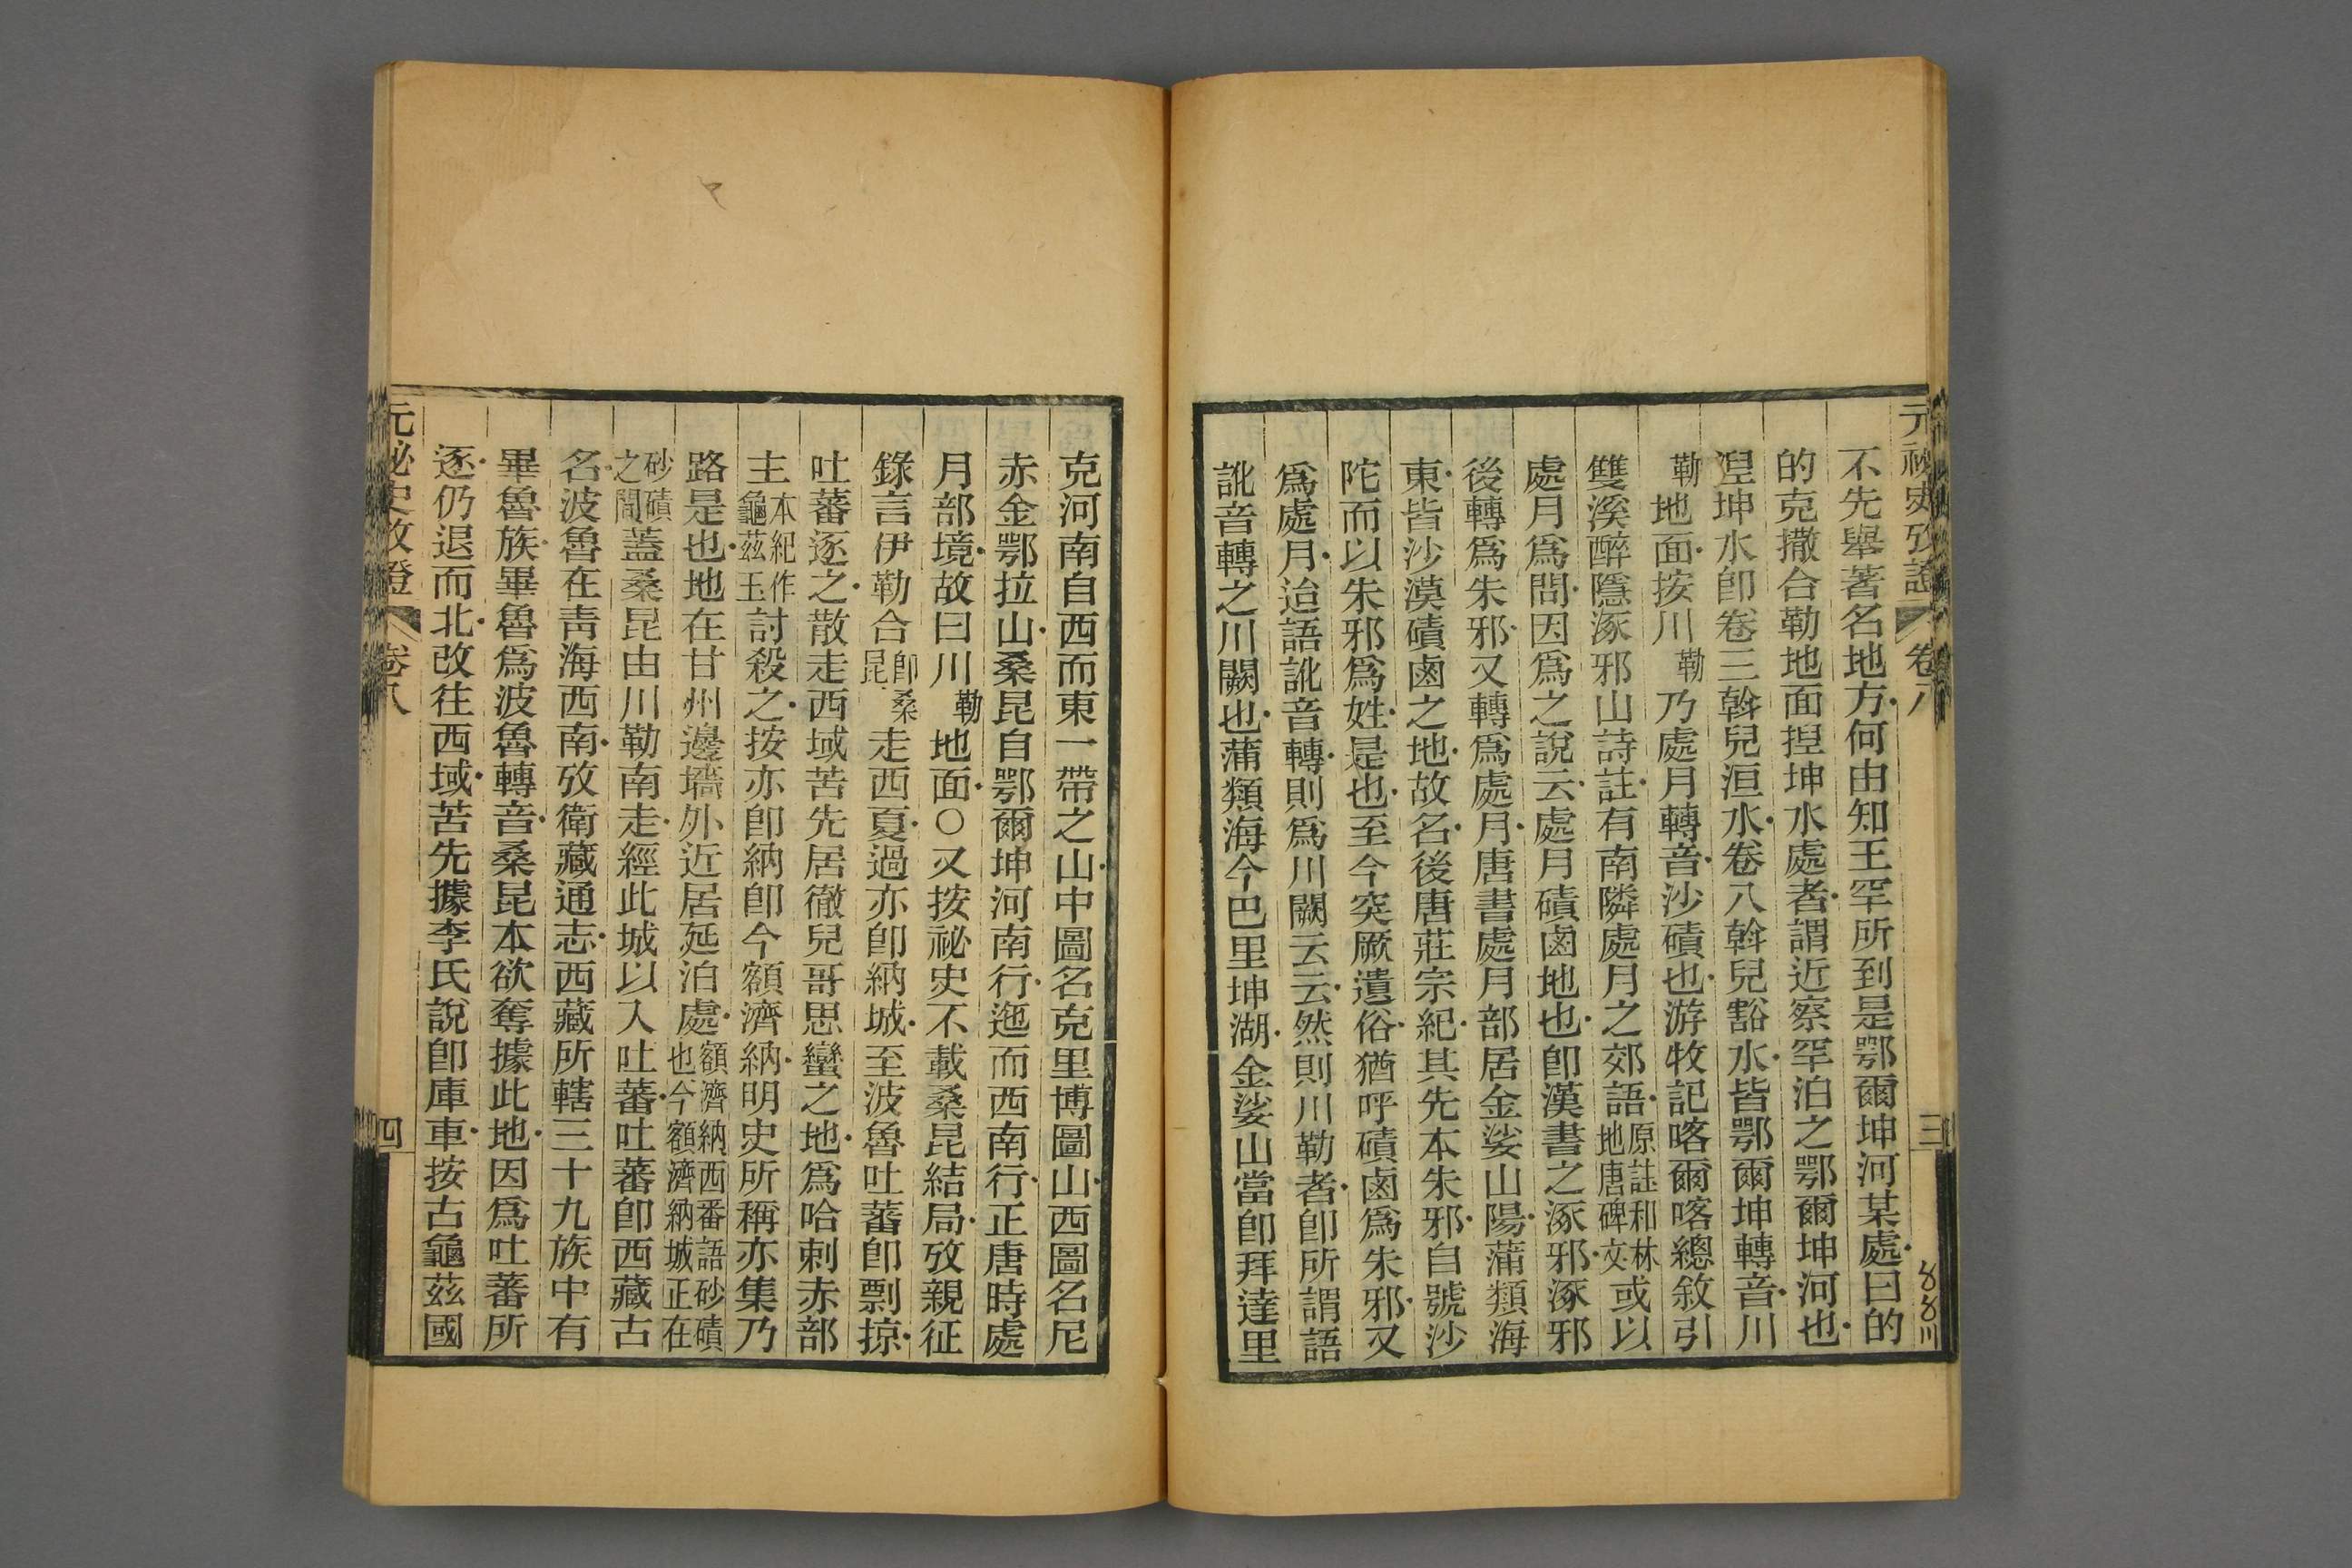 元祕史攷證 卷八 三
不先舉著名地方何由知王罕所到是鄂爾坤河某處曰的
的克撒合勒地面揑坤水處者謂近察罕泊之鄂爾坤河也
湼坤水卽卷三斡兒洹水卷八斡兒豁水皆鄂爾坤轉音川
勒地面按川勒乃處月轉音沙磧也游牧記喀爾喀總敘引
雙溪醉隱涿邪山詩註有南隣處月之郊語原註和林地唐碑文或以
處月爲問因爲之說云處月磧鹵地也卽漢書之涿邪涿邪
後轉爲朱邪又轉爲處月唐書處月部居金娑山陽蒲類海
東皆沙漠磧鹵之地故名後唐莊宗紀其先本朱邪自號沙
陀而以朱邪爲姓是也至今突厥遺俗猶呼磧鹵爲朱邪又
爲處月迨語訛音轉則爲川闕云云然則川勒者卽所謂語
訛音轉之川闕也蒲類海今巴里坤湖金娑山當卽拜達里
克河南自西而東一帶之山中圖名克里博圖山西圖名尼
赤金鄂拉山桑昆自鄂爾坤河南行迤而西南行正唐時處
月部境故曰川勒地面○又按祕史不載桑昆結局攷親征
錄言伊勒合卽桑昆走西夏過亦卽納城至波魯吐蕃卽剽掠
吐蕃逐之散走西域苦先居徹兒哥思蠻之地爲哈剌赤部
主本紀作龜茲王討殺之按亦卽納卽今額濟納明史所稱亦集乃
路是也地在甘州邊墻外近居延泊處額濟納西番語砂磧也今額濟納城正在
砂磧之間蓋桑昆由川勒南走經此城以入吐蕃吐蕃卽西藏古
名波魯在靑海西南攷衛藏通志西藏所轄三十九族中有
畢魯族畢魯爲波魯轉音桑昆本欲奪據此地因爲吐蕃所
逐仍退而北改往西域苦先據李氏說卽庫車按古龜茲國
元祕史攷證 卷八 四